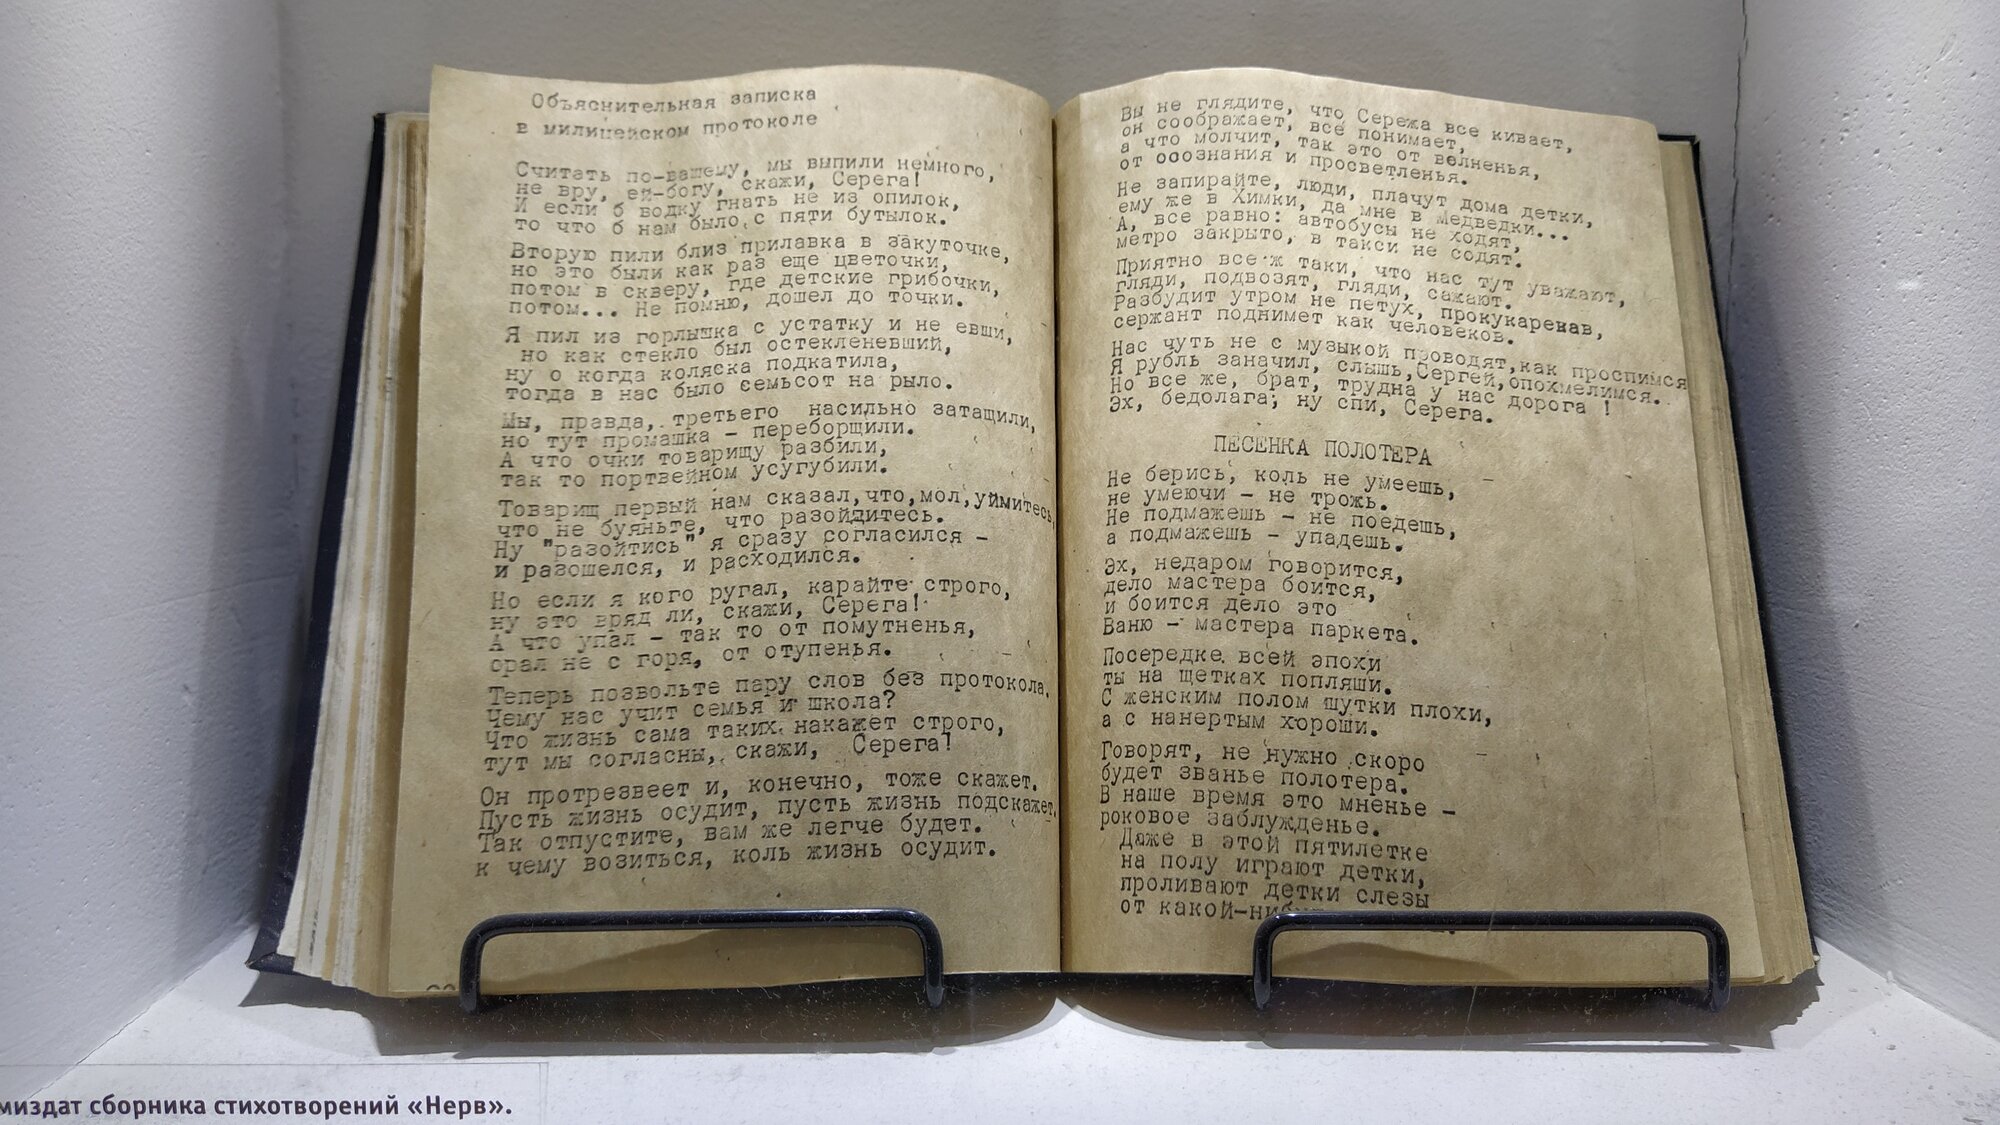 Объяснительная записка
в милицейском протоколе
Считать по-вашему, мы выпили немного,
не вру, ей-богу, скажи, Серега!
И если б водку гнать не из опилок,
то что б нам было,с пяти бутылок.
Вторую пили близ прилавка в закуточке,
но это были как раз еще цветочки,
потом в скверу, где детские грибочки,
потом... Не помню, дошел до точки.
Я пил из горлышка с устатку и не евши,
но как стекло был остекленевший,
ну о когда коляска подкатила,
тогда в нас было семьсот на рыло.
Мы, правда, третьего насильно затащили,
но тут промашка - переборщили.
А что очки товарищу разбили,
так то портвейном усугубили.
Товарищ первый нам сказал,что,мол,уймитесь,
что не буяньте, что разойдитесь.
Ну "разойтись" я сразу согласился -
и разошелся, и расходился.
Но если я кого ругал, карайте строго,
ну это вряд ли, скажи, Серега!
А что упал - так то от помутненья,
орал не с горя, от отупенья.
Теперь позвольте пару слов без протокола.
Чему нас учит семья и школа?
Что жизнь сама таких накажет строго,
тут мы согласны, скажи, Серега!
Он протрезвеет и, конечно, тоже скажет.
Пусть жизнь осудит, пусть жизнь подскажет.
Так отпустите, вам же легче будет.
к чему возиться, коль жизнь осудит.
Вы не глядите, что Сережа все кивает,
он соображает, все понимает,
а что молчит, так это от волненья,
от осознания и просветленья.
Не запирайте, люди, плачут дома детки,
ему же в Химки, да мне в Медведки...
А, все равно: автобусы не ходят,
метро закрыто, в такси не содят.
Приятно все ж таки, что нас тут уважают,
гляди, подвозят, гляди, сажают.
Разбудит утром не петух, прокукарекав,
сержант поднимет как человеков.
Нас чуть не с музыкой проводят,как проспимся
Я рубль заначил, слышь,Сергей,опохмелимся.
Но все же, брат, трудна у нас дорога !
Эх, бедолага; ну спи, Серега.
ПЕСЕНКА ПОЛОТЕРА
Не берись, коль не умеешь,
не умеючи - не трожь.
Не подмажешь - не поедешь,
а подмажешь - упадешь.
Эх, недаром говорится,
дело мастера боится,
и боится дело это
Ваню - мастера паркета.
Посередке всей эпохи
ты на щетках попляши.
С женским полом шутки плохи,
а с нанертым хороши.
Говорят, не нужно скоро
будет званье полотера.
В наше время это мненье -
роковое заблужденье.
Даже в этой пятилетке
на полу играют детки,
проливают детки слезы
от какой-ниб
миздат сборника стихотворений «Нерв».